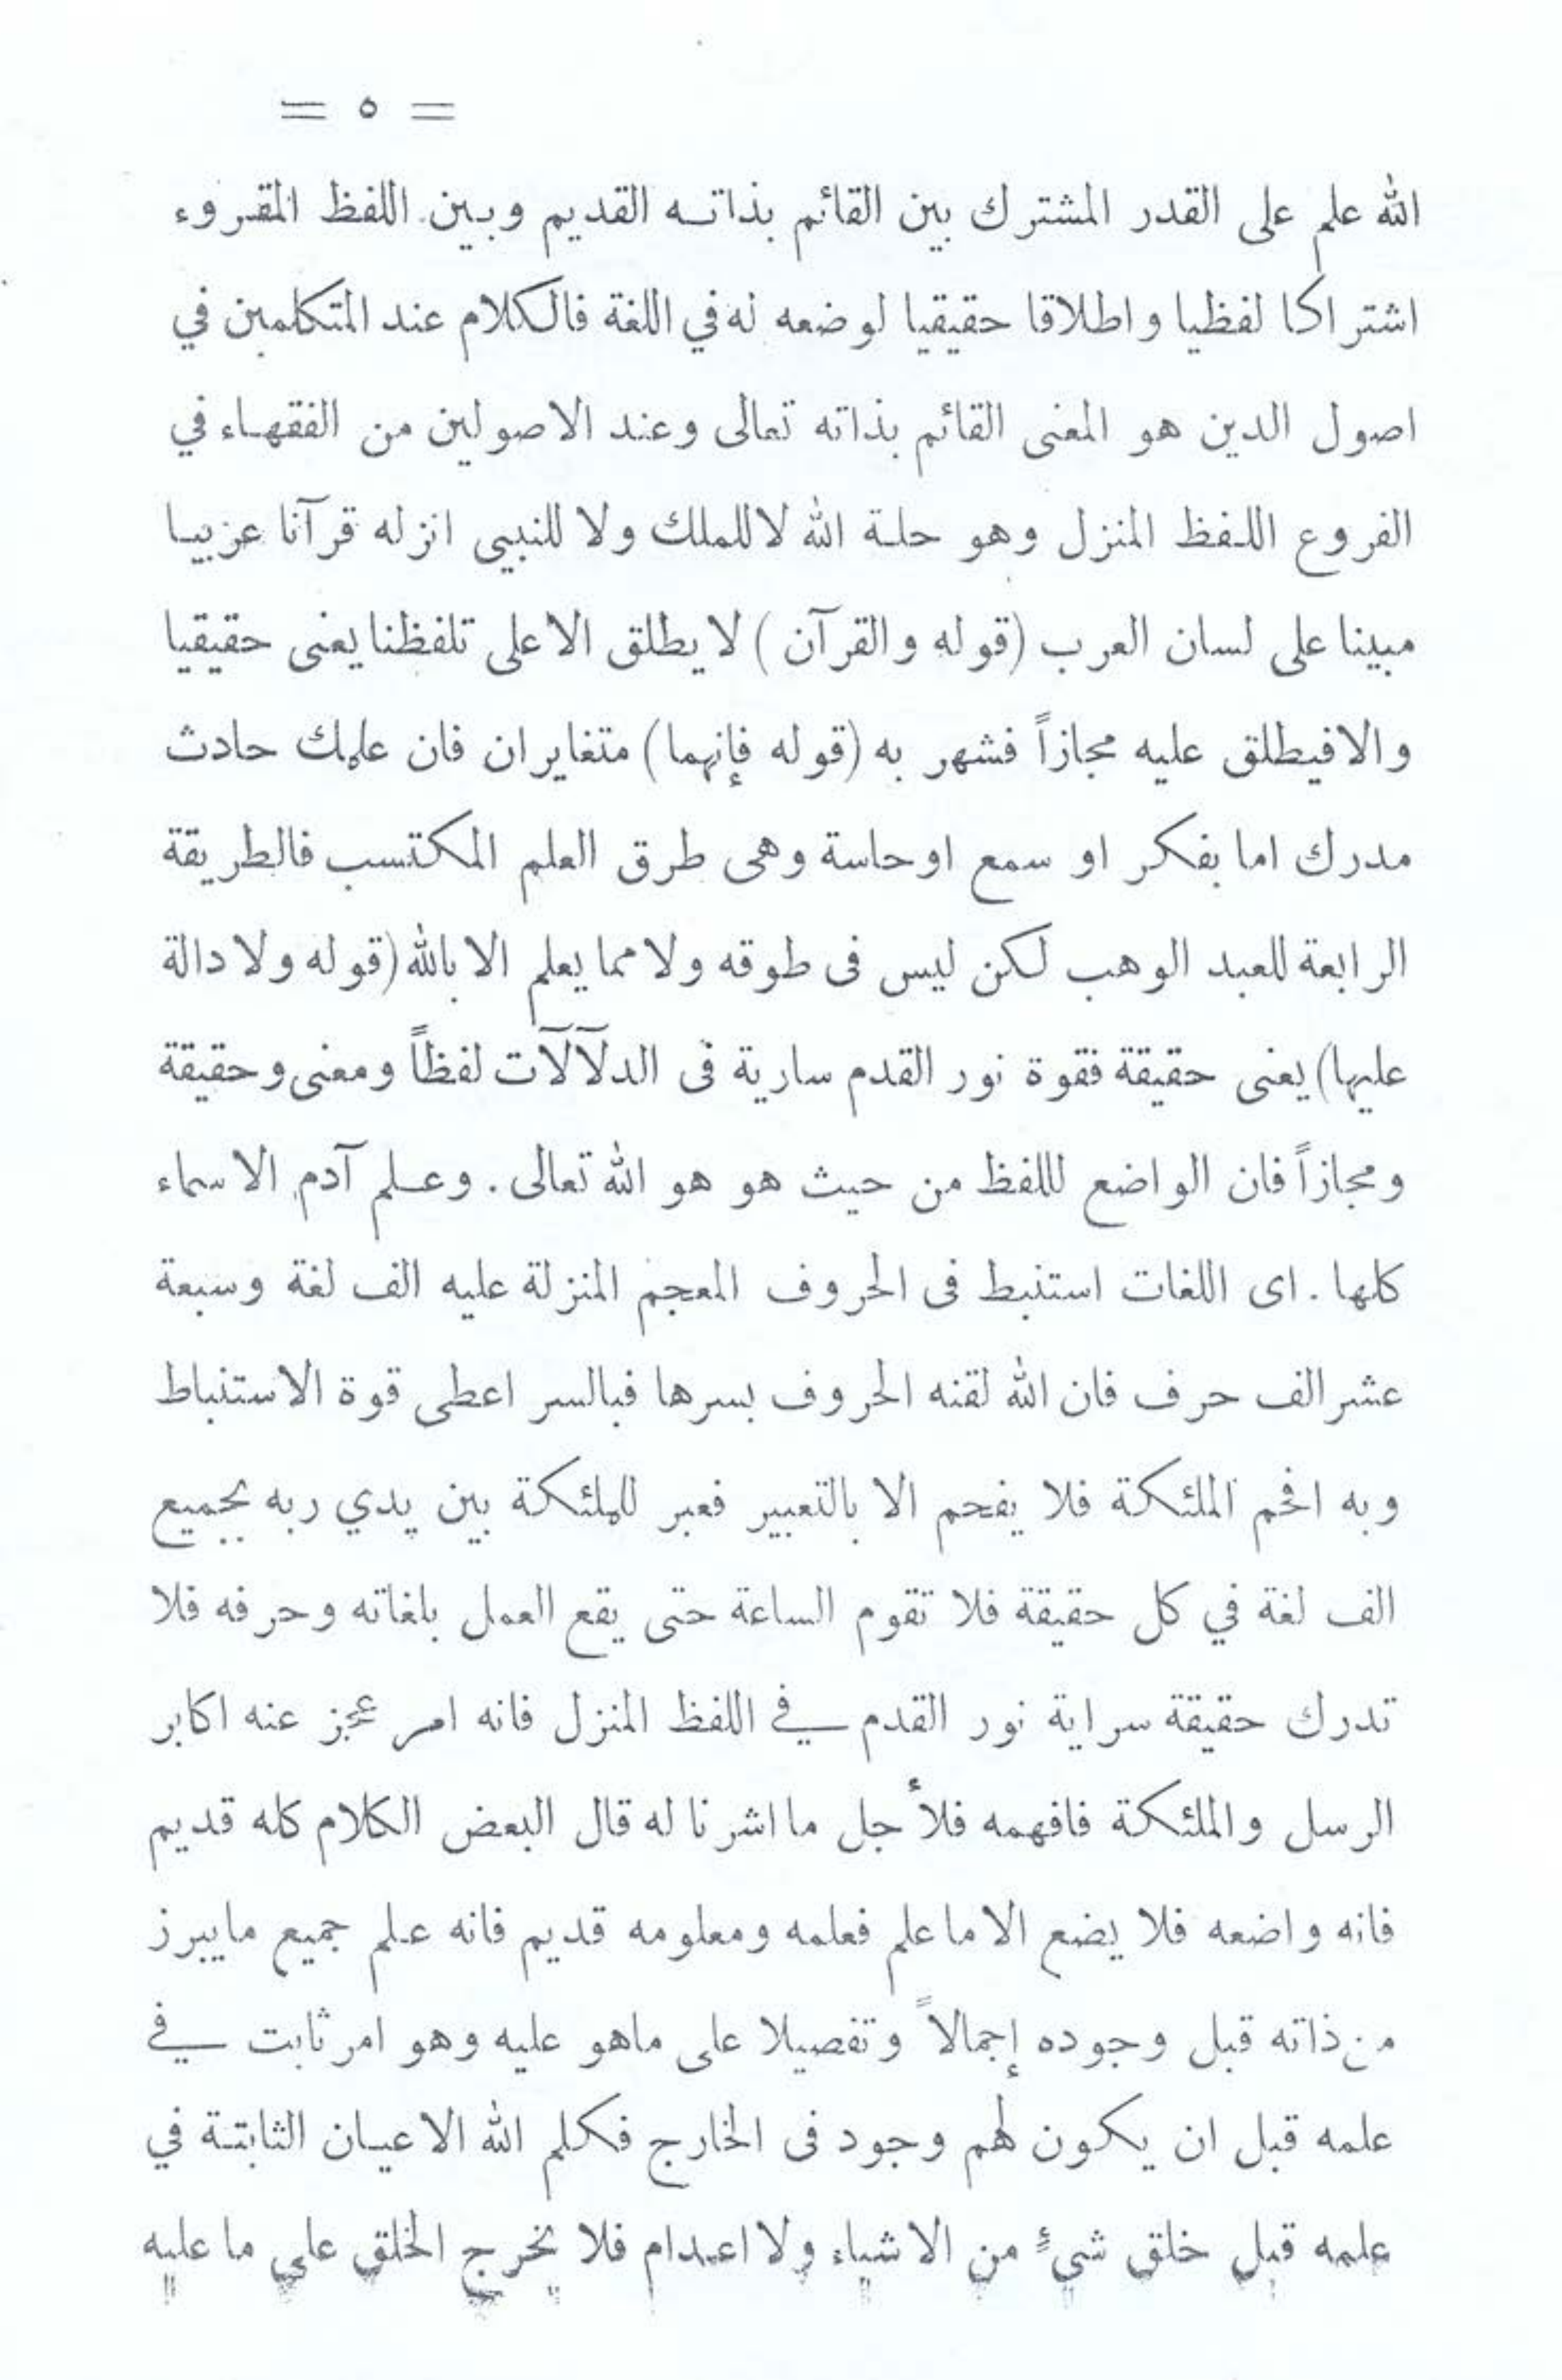 = ٥ =
الله علم على القدر المشترك بين القائم بذاته القديم وبين اللفظ المقروء
اشتراكا لفظيا واطلاقا حقيقيا لوضعه له في اللغة فالكلام عند المتكلمين في
اصول الدين هو المعنى القائم بذاته تعالى وعند الاصولين من الفقهاء في
الفروع اللفظ المنزل وهو حلة الله لا للملك ولا للنبيى انزله قرآنا عربيا
مبينا على لسان العرب (قوله والقرآن) لا يطلق الا على تلفظنا يعنى حقيقيا
والا فيطلق عليه مجازاً فشهر به (قوله فإنهما) متغايران فان علمك حادث
مدرك اما بفكر او سمع او حاسة وهى طرق العلم المكتسب فالطريقة
الرابعة للعبد الوهب لكن ليس فى طوقه ولا مما يعلم الا بالله (قوله ولا دالة
عليها) يعنى حقيقة فقوة نور القدم سارية فى الدلآلآت لفظاً ومعنى وحقيقة
ومجازاً فان الواضع للفظ من حيث هو هو الله تعالى . وعلم آدم الاسماء
كلها . اى اللغات استنبط فى الحروف المعجم المنزلة عليه الف لغة وسبعة
عشر الف حرف فان الله لقنه الحروف بسرها فبالسر اعطى قوة الاستنباط
وبه افحم الملئكة فلا يفحم الا بالتعبير فعبر للملئكة بين يدي ربه بجميع
الف لغة في كل حقيقة فلا تقوم الساعة حتى يقع العمل بلغاته وحرفه فلا
تدرك حقيقة سراية نور القدم في اللفظ المنزل فانه امر عجز عنه اكابر
الرسل والملئكة فافهمه فلأجل ما اشرنا له قال البعض الكلام كله قديم
فانه واضعه فلا يضع الا ما علم فعلمه ومعلومه قديم فانه علم جميع ما يبرز
من ذاته قبل وجوده إجمالاً وتفصيلا على ماهو عليه وهو امر ثابت في
علمه قبل ان يكون لهم وجود فى الخارج فكلم الله الاعيان الثابتة في
علمه قبل خلق شئ من الاشياء ولا اعدام فلا يخرج الخلق على ما عليه